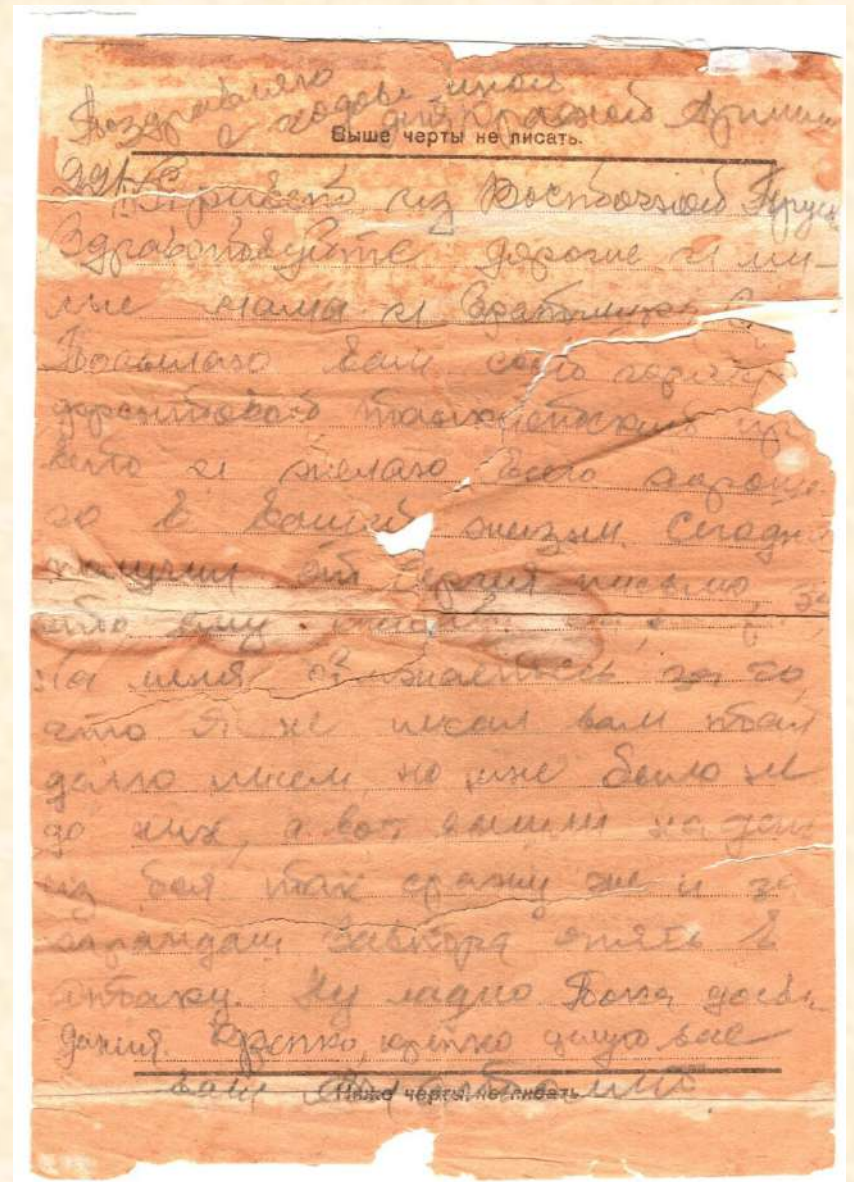 Поздравляю
с годовщиной
дня Красной Армии
Выше черты не писать.
Привет из Восточной Прус
Здравствуйте дорогие и ми-
лые мама и братишка
Посылаю вам свой горяч
фронтовой танкистский пр
вет и желаю всего хороше
го в вашей жизни. Сегодня
получил от Сергея письмо,
что ему
на меня за то
что я не писал вам так
долго писем, но уже было не
до них, а вот вышли на день
из боя так сразу же и за
карандаш завтра опять в
атаку. Ну ладно Пока досви
дания. Крепко, крепко целую вас
ваш
Ниже черты не писать